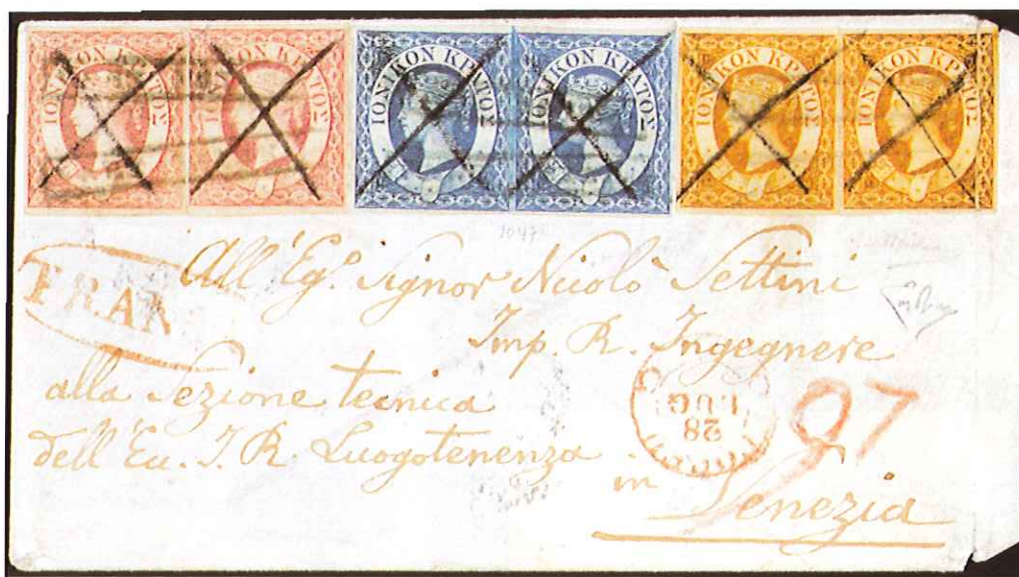 ΙΟΝΙΚΟΝ ΚΡΑΤΟΣ ΙΟΝΙΚΟΝ ΚΡΑΤΟΣ ΙΟΝΙΚΟΝ ΚΡΑΤΟΣ ΙΟΝΙΚΟΝ ΚΡΑΤΟΣ ΙΟΝΙΚΟΝ ΚΡΑΤΟΣ ΙΟΝΙΚΟΝ ΚΡΑΤΟΣ
1047
FRAN
All'Eg.º Signor Nicolò Settini
Imp. R. Ingegnere
alla Sezione tecnica
dell'Ecc. I. R. Luogotenenza
in
Venezia
LUG
28
97